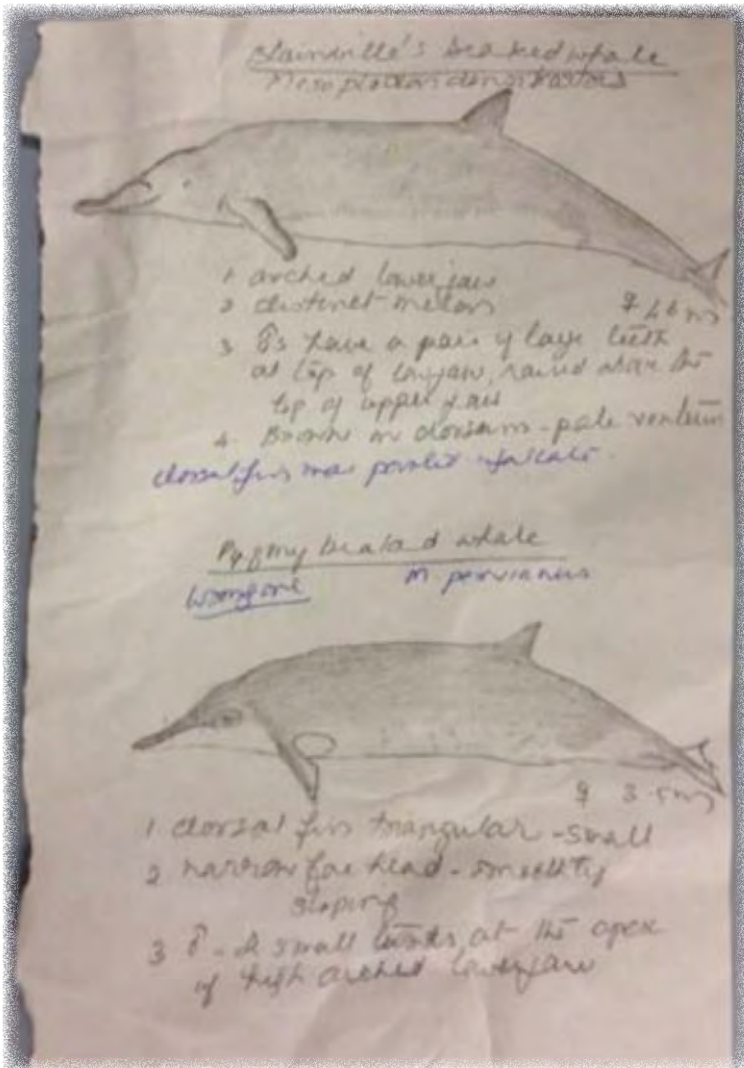 Blainville's beaked whale
Mesoplodon densirostris
1 arched lower jaw
2 distinct melon
♀ 4.6 ms
3 ♂s have a pair of large teeth
at top of lowjaw, raised above the
top of upper jaw
4. Brown in dorsum - pale ventrum
dorsal fin more pointed - falcate.
Pygmy beaked whale
M peruvianus
♀ 3.5 ms
1 dorsal fin triangular - small
2 narrow fore head - smoothly
sloping
3 ♂ - 2 small at the apex
of high arched lowerjaw